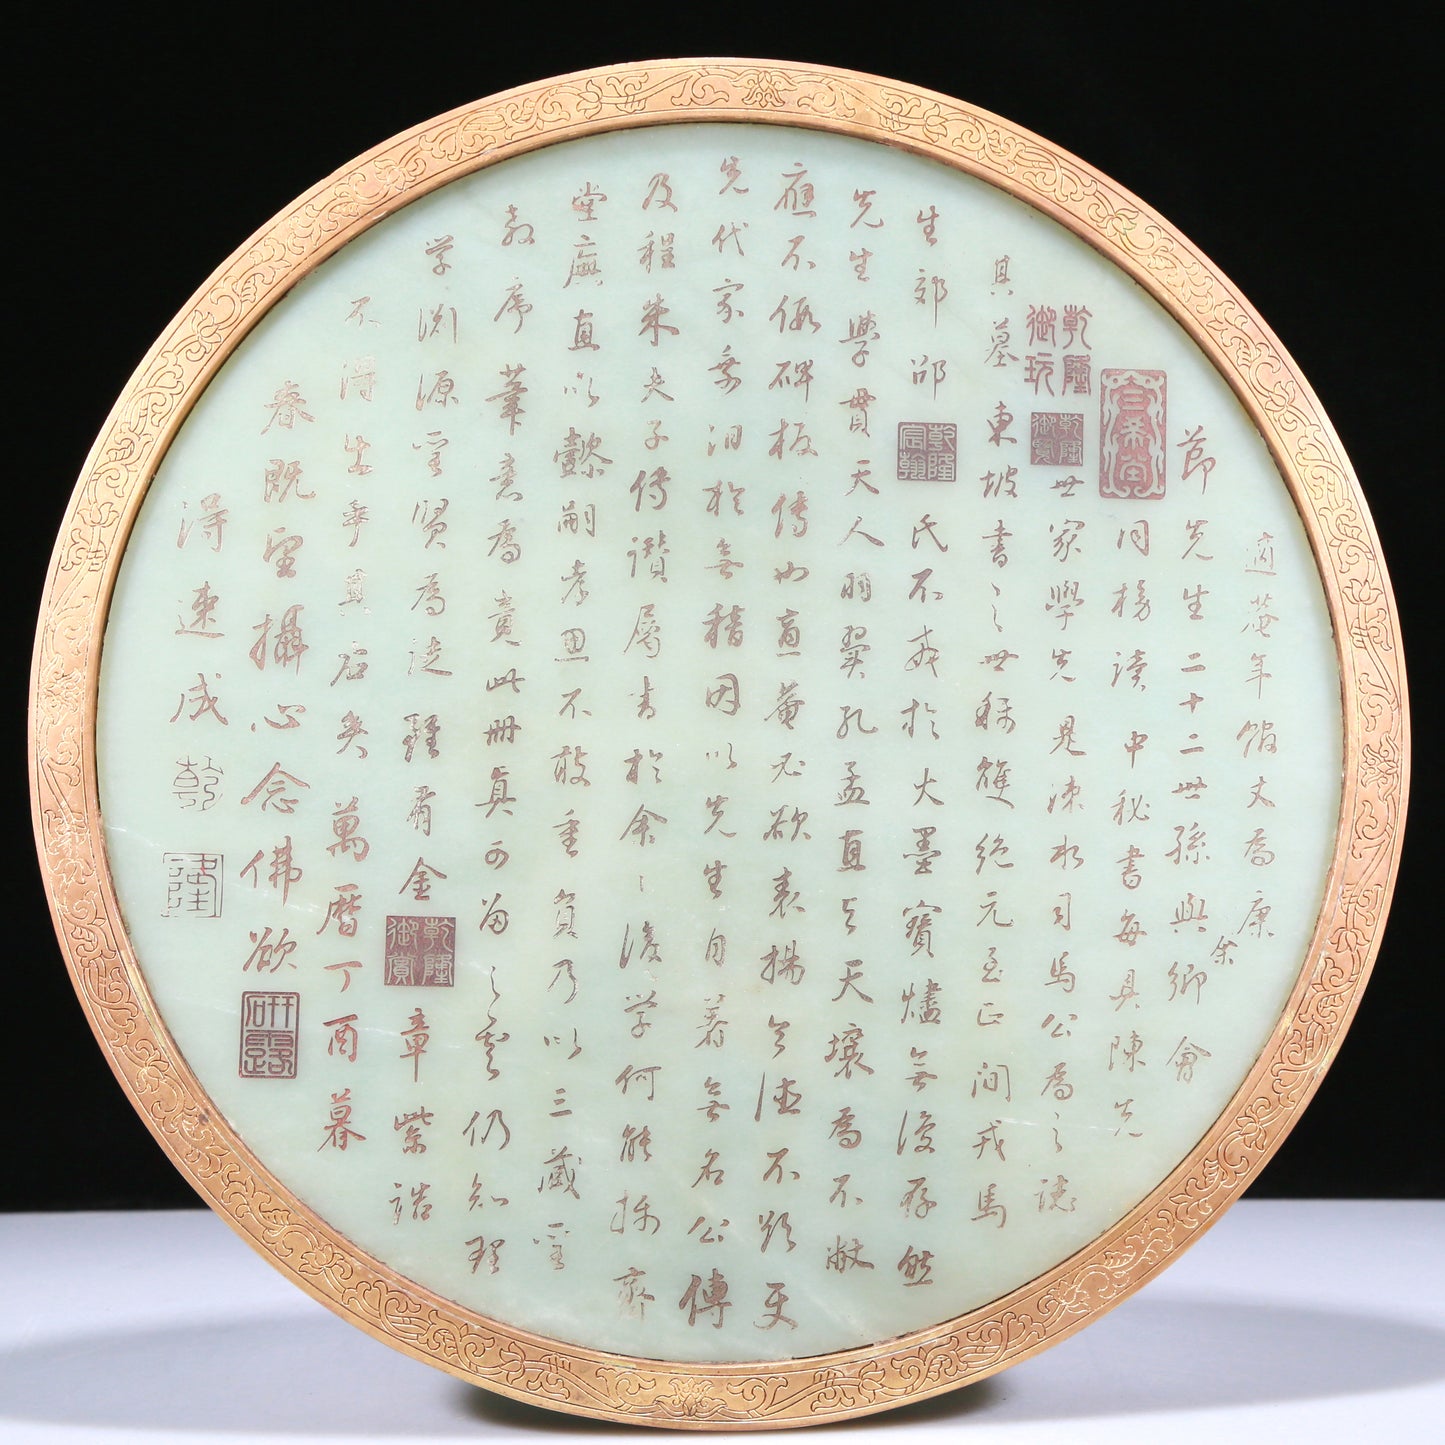 適菴年館丈為康
節先生二十二世孫與余鄉會
同榜讀中秘書每具陳先
世家學先是涑水司馬公為之誌
其墓東坡書之世稱雙絕元至正間戎馬
生郊邵氏不戒於火墨寶燼無復存然
先生學貫天人羽翼孔孟直與天壤為不敝
應不假碑板傳也適菴必欲表揚令德不斁更
先代家乘汩於無稽因以先生自著無名公傳
及程朱夫子傳讚屬書於余余後學何能摛齊
堂廡直以懿嗣孝思不敢重負乃以三藏聖
教序筆意為竟此冊真可留之云仍知理
學淵源聖賢為徒羅看金章紫誥
不得生華其右矣萬曆丁酉暮
春既望攝心念佛欲
得速成
乾隆御玩
乾隆御覽
乾隆宸翰
乾隆御賞
研露
乾
隆